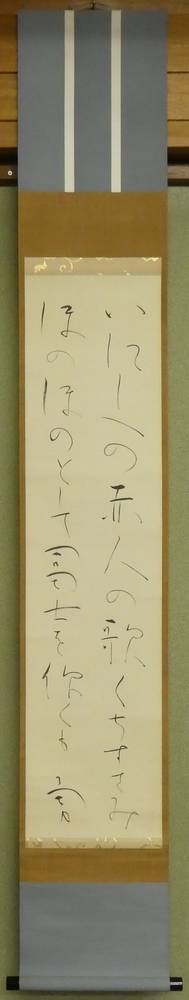 いにしへの赤人の歌くちすさみ
ほのほのとして富士を仰くも 勇